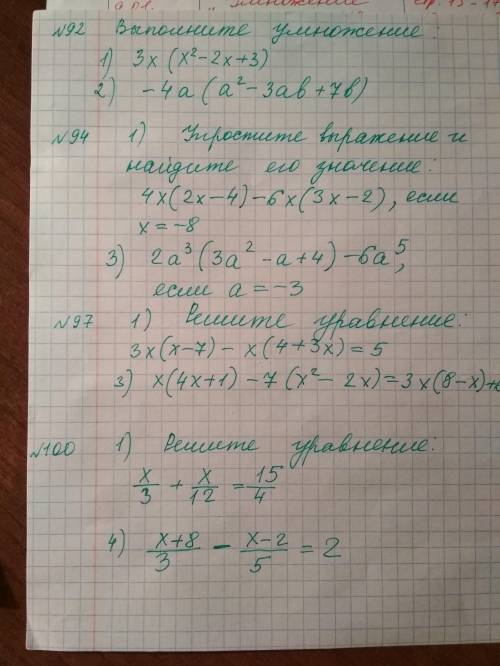 "Умножение
№92 Выполните умножение:
1) 3x (x²-2x+3)
2) -4a (a²-3ab+7b)
№94 1) Упростите выражение и
найдите его значение.
4x(2x-4)-6x(3x-2), если
x=-8
3) 2a³(3a²-a+4)-6a⁵,
если a=-3
№97 1) Решите уравнение:
3x(x-7)-x(4+3x)=5
3) x(4x+1)-7(x²-2x)=3x(8-x)+
№100 1) Решите уравнение:
x/3 + x/12 = 15/4
4) x+8/3 - x-2/5 = 2